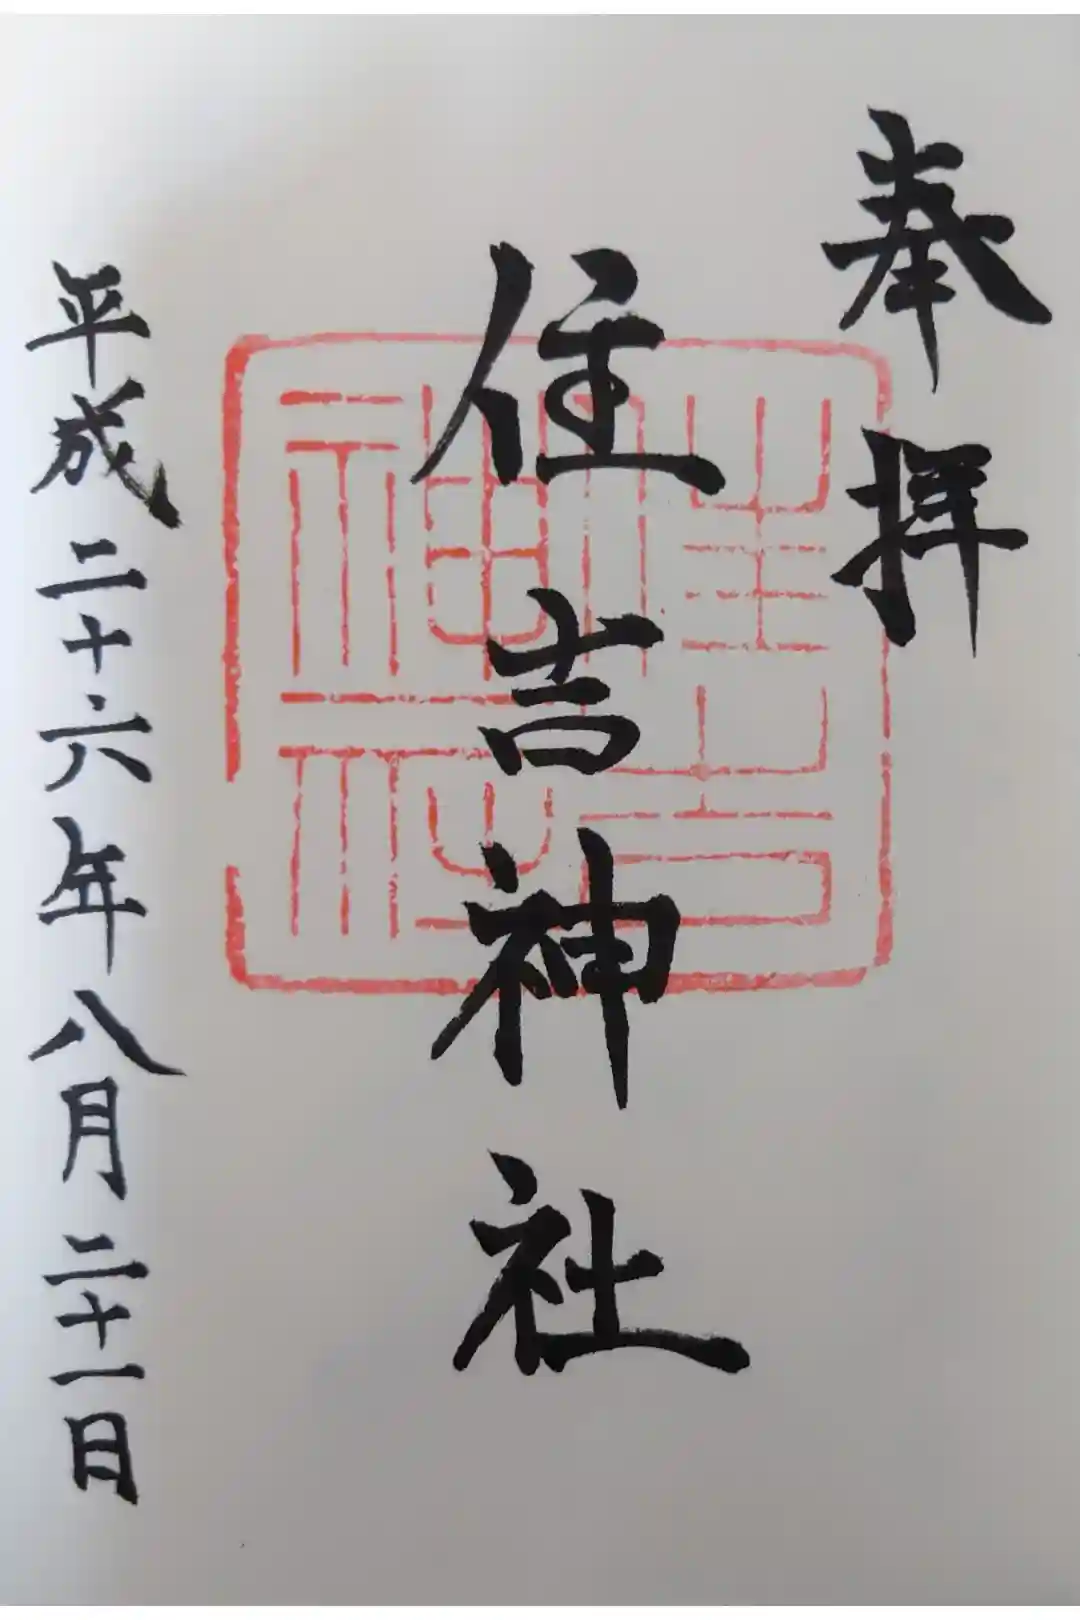 奉拝
住吉神社
住吉神社
平成二十六年八月二十一日